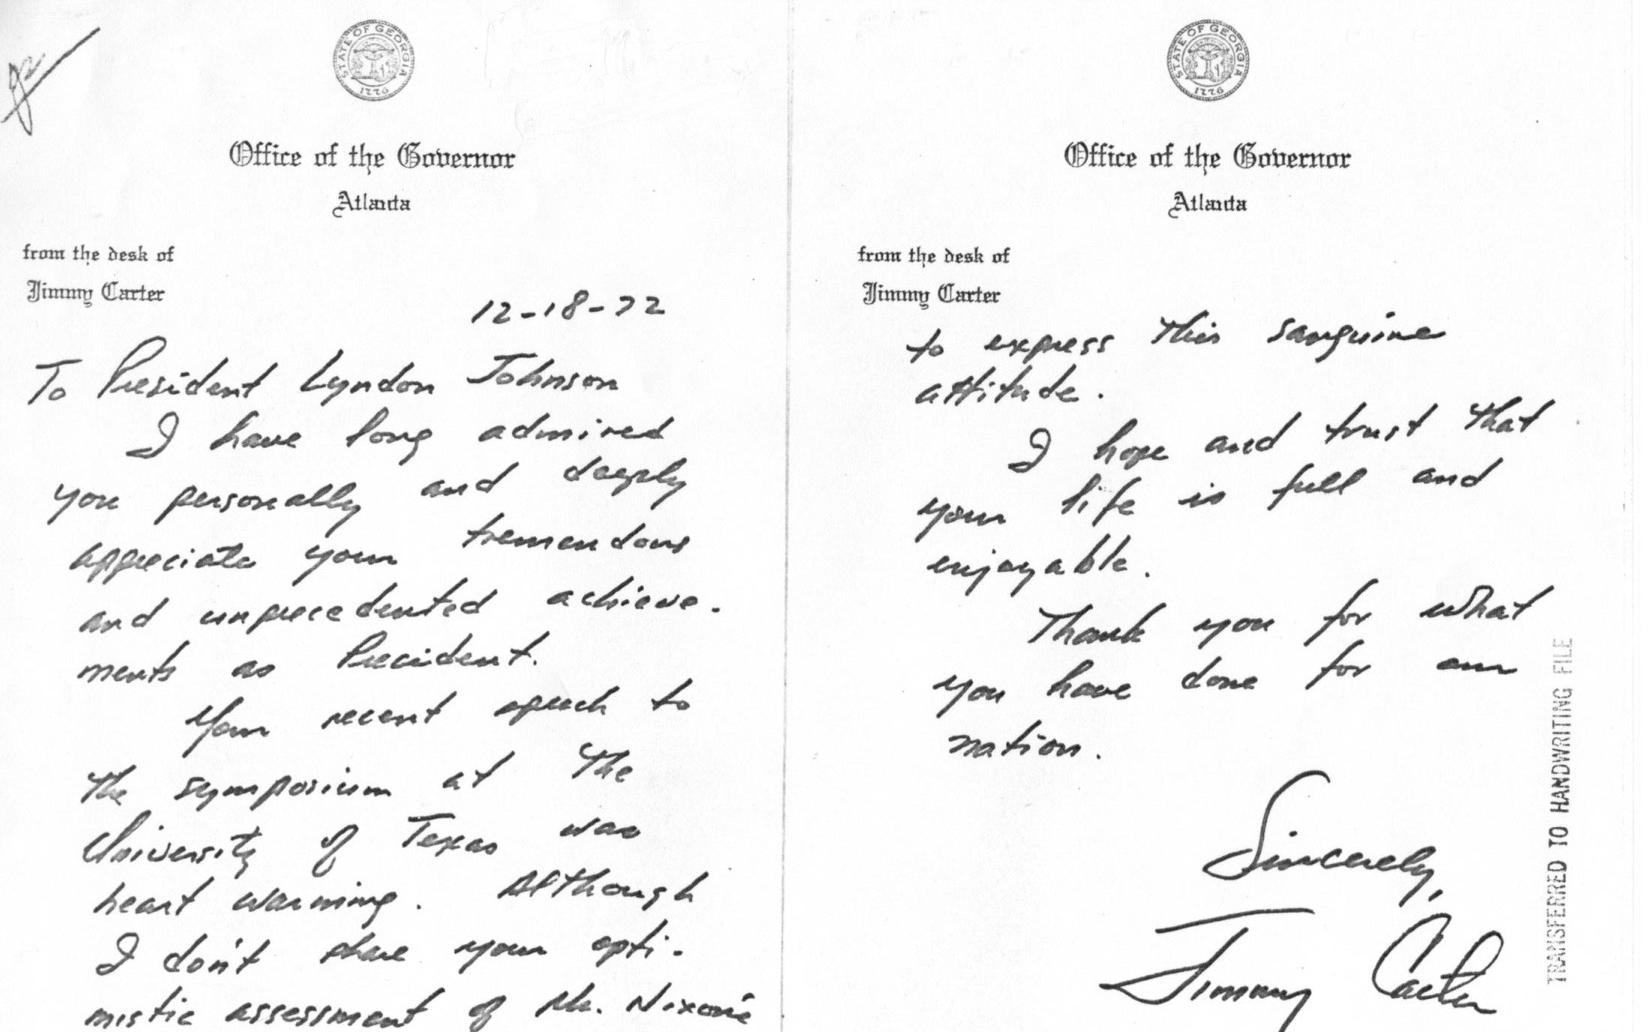 STATE OF GEORGIA
1776
Office of the Governor
Atlanta
from the desk of
Jimmy Carter
12-18-72
To President Lyndon Johnson
I have long admired
you personally and deeply
appreciate your tremendous
and unprecedented achieve-
ments as President.
Your recent speech to
the symposium at the
University of Texas was
heart warming. Although
I don't share your opti-
mistic assessment of Mr. Nixon's
STATE OF GEORGIA
1776
Office of the Governor
Atlanta
from the desk of
Jimmy Carter
to express this sanguine
attitude.
I hope and trust that
your life is full and
enjoyable.
Thank you for what
you have done for our
nation.
Sincerely,
Jimmy Carter
TRANSFERRED TO HANDWRITING FILE